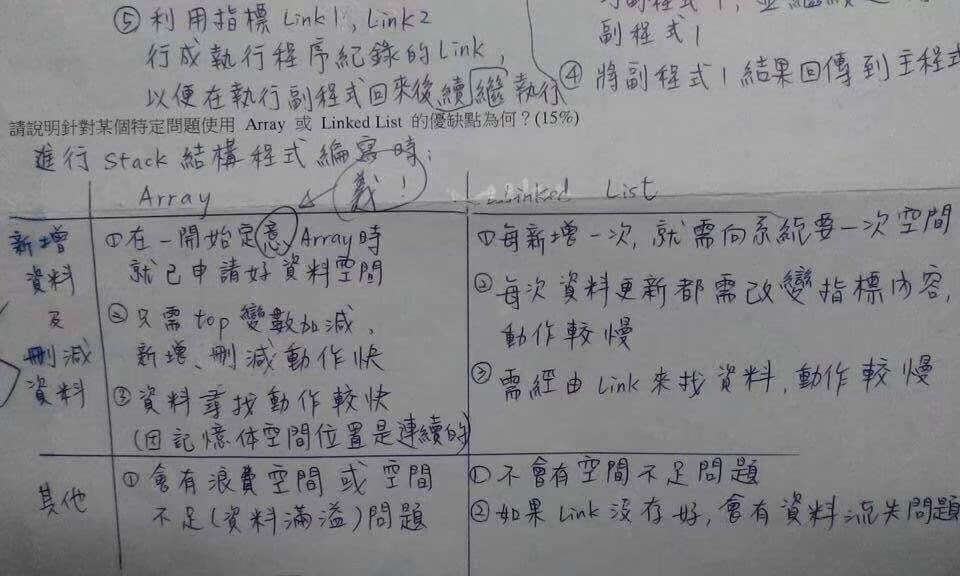 ⑤ 利用指標 Link1, Link2
行成執行程序紀錄的Link,
以便在執行副程式回來後續繼執行
副程式1
④ 將副程式1結果回傳到主程式
請說明針對某個特定問題使用 Array 或 Linked List 的優缺點為何？(15%)
進行 Stack 結構程式編寫時:
義!
Array
Linked List
新增
資料
及
刪減
資料
①在一開始定意Array時
就已申請好資料空間
②只需top變數加減、
新增、刪減動作快
③資料尋找動作較快
(因記憶体空間位置是連續的)
①每新增一次, 就需向系統要一次空間
②每次資料更新都需改變指標內容,
動作較慢
③需經由Link來找資料, 動作較慢
其他
①會有浪費空間或空間
不足(資料滿溢)問題
①不會有空間不足問題
②如果Link沒存好, 會有資料流失問題